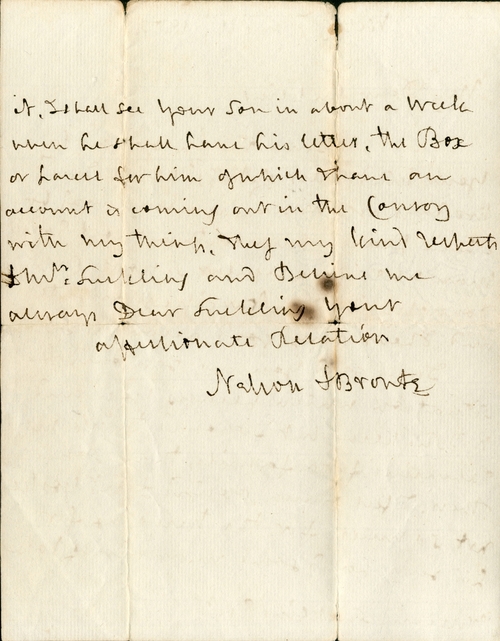 it, I shall see your Son in about a Week
when he shall have his letter, the Box
or parcel for him of which I have an
account is coming out in the Convoy
with my things, my kind respects
Mrs. Suckling and Believe me
always Dear Suckling your
affectionate Relation
Nelson & Bronte